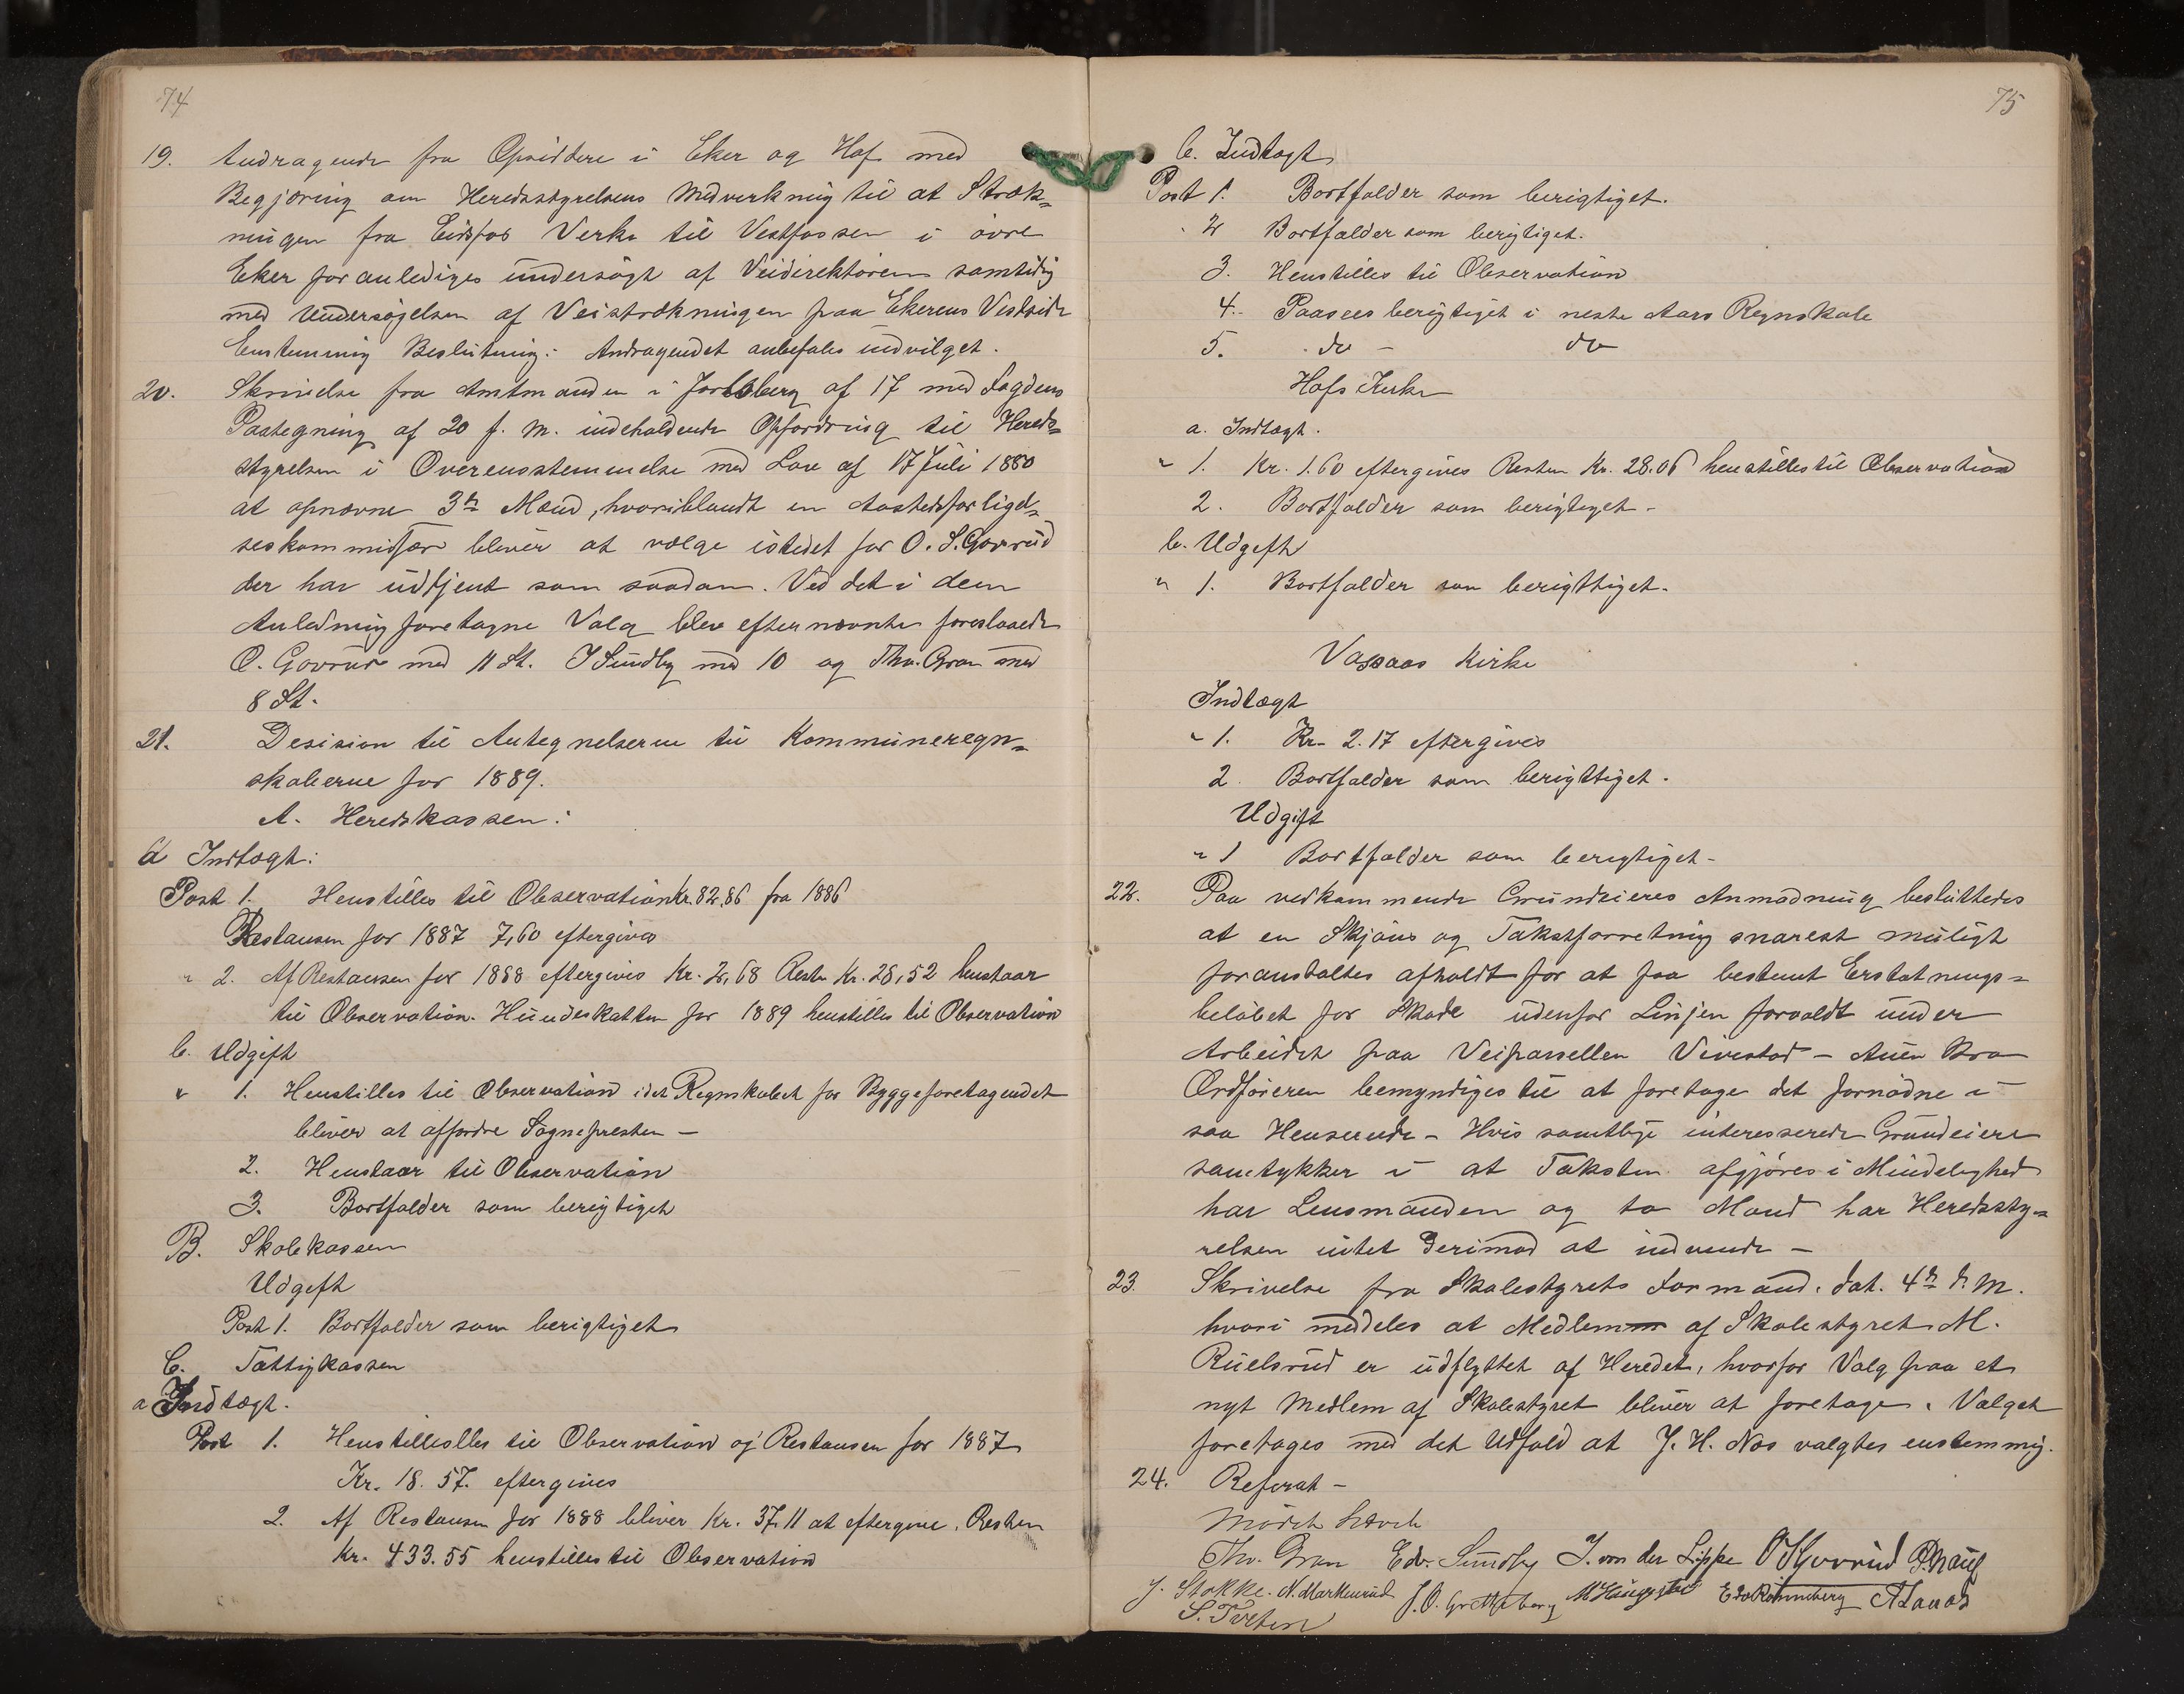 74
19. Andragende fra Opsiddere i Eker og Hof med
Begjæring om Heredsstyrelsens Medvirkning til at Stræk=
ningen fra Eidsfos Verk til Vestfossen i øvre
Eker foranlediges undersøgt af Veidirektøren samtidig
med Undersøgelsen af Veistrækningen paa Ekerens Vestside
Enstemmig Beslutning: Andragendet anbefales indvilget.
20. Skrivelse fra Amtmanden i Jarlsberg af 17 med Fogdens
Paategning af 20 f. M. indeholdende Opfordring til Hereds=
styrelsen i Overensstemmelse med Lov af 17 Juli 1880
at opnævne 3de Mænd, hvoriblandt en Aastedsforligel=
seskommissær bliver at vælge istedet for O. S. Gavrud
der har udtjent som saadan. Ved det i den
Anledning foretagne Valg blev efternævnte foreslaaede
O. Gavrud med 11 St. J Sundby med 10 og Thv. Gran med
8 St.
21. Desision til Antegnelserne til Kommuneregn=
skaberne for 1889.
A. Heredskassen:
a Indtægt:
Post 1. Henstilles til Observation Kr. 82,86 fra 1886
Restansen for 1887 7,60 eftergives
" 2. Af Restansen for 1888 eftergives Kr. 2,68 Resten Kr. 28,52 henstaar
til Observation. Hundeskatten for 1889 henstilles til Observation
b. Udgift
" 1. Henstilles til Observation idet Regnskabet for Byggeforetagendet
bliver at affordre Sognepresten –
2. Henstaar til Observation
3. Bortfalder som berigtiget
B. Skolekassen
Udgift
Post 1. Bortfalder som berigtiget
C. Fattigkassen
a Indtægt.
Post 1. Henstilleslles til Observation og Restansen for 1887
Kr. 18.57. eftergives
2. Af Restansen for 1888 bliver Kr. 37.11 at eftergive. Resten
Kr. 433.55 henstilles til Observation
75
b. Indtægt
Post 1. Bortfalder som berigtiget.
" 2 Bortfalder som berigtiget.
3. Henstilles til Observation
4. Paasees berigtiget i neste Aars Regnskab
5. do – do
Hofs Kirke
a. Indtægt.
" 1. Kr. 1.60 eftergives Resten Kr. 28.06 henstilles til Observation
2. Bortfalder som berigtiget –
b. Udgift
" 1. Bortfalder som berigttiget.
Vassaas Kirke
Indtægt
" 1. Kr. 2.17 eftergives
2. Bortfalder som berigttiget.
Udgift
" 1 Bortfalder som berigtiget –
22. Paa vedkommende Grundeieres Anmodning besluttedes
at en Skjøns og Takstforretning snarest muligt
foranstaltes afholdt for at faa bestemt Erstatnings=
beløbet for Skade udenfor Linjen forvoldt under
Arbeidet paa Veiparsellen Vivestad – Auen Bro
Ordføreren bemyndiges til at foretage det fornødne i
saa Henseende – Hvis samtlige interesserede Grundeiere
samtykker i at Taksten afgjøres i Mindelighed
har Lensmanden og to Mænd har Heredssty=
relsen intet derimod at indvende –
23. Skrivelse fra Skolestyrets Formand. dat. 4de d. M.
hvori meddeles at Medlem af Skolestyret M.
Ruelsrud er udflyttet af Heredet, hvorfor Valg paa et
nyt Medlem af Skolestyret bliver at foretage. Valget
foretages med det Udfald at J. H. Nos valgtes enstemmig.
24. Referat –
Mørch
Thv. Gran Edv. Sundby J. von der Lippe
J. Stokke.
S. Tveten